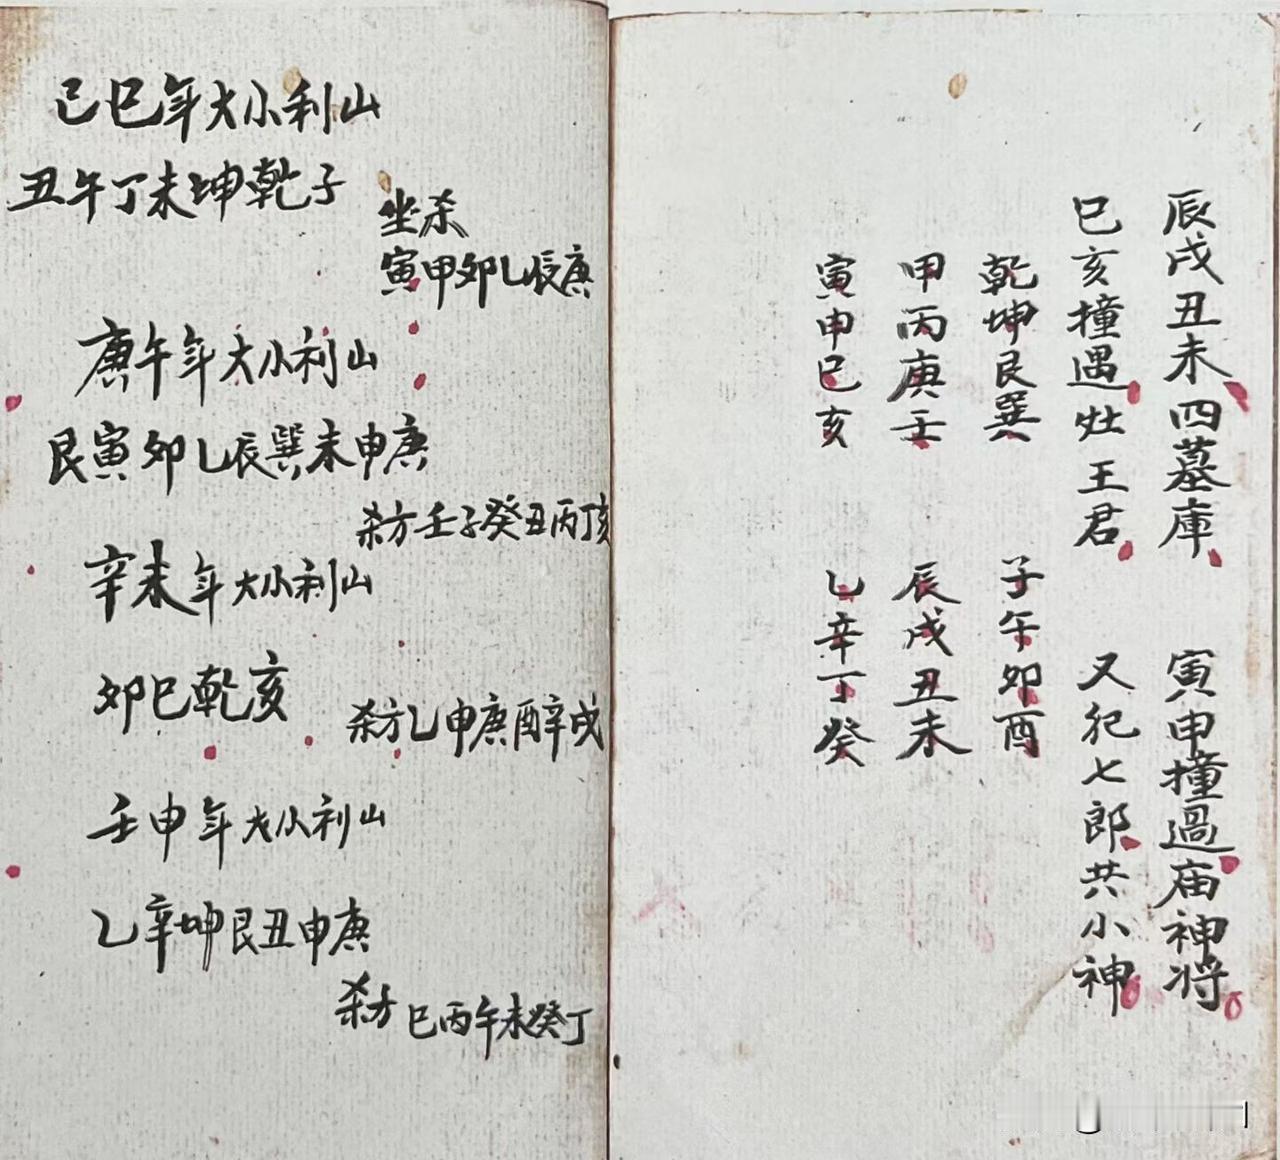 辰戌丑未四墓庫 寅申撞過庙神将
巳亥撞遇灶王君 又犯七郎共小神
乾坤艮巽 子午卯酉
甲丙庚壬 辰戌丑未
寅申巳亥 乙辛丁癸
己巳年大小利山
丑午丁未坤乾子
坐杀
寅甲卯乙辰庚
庚午年大小利山
艮寅卯乙辰巽未申庚
杀方壬子癸丑丙丁亥
辛未年大小利山
卯巳乾亥
杀方乙申庚酉辛戌
壬申年大小利山
乙辛坤艮丑申庚
杀方巳丙午未癸丁